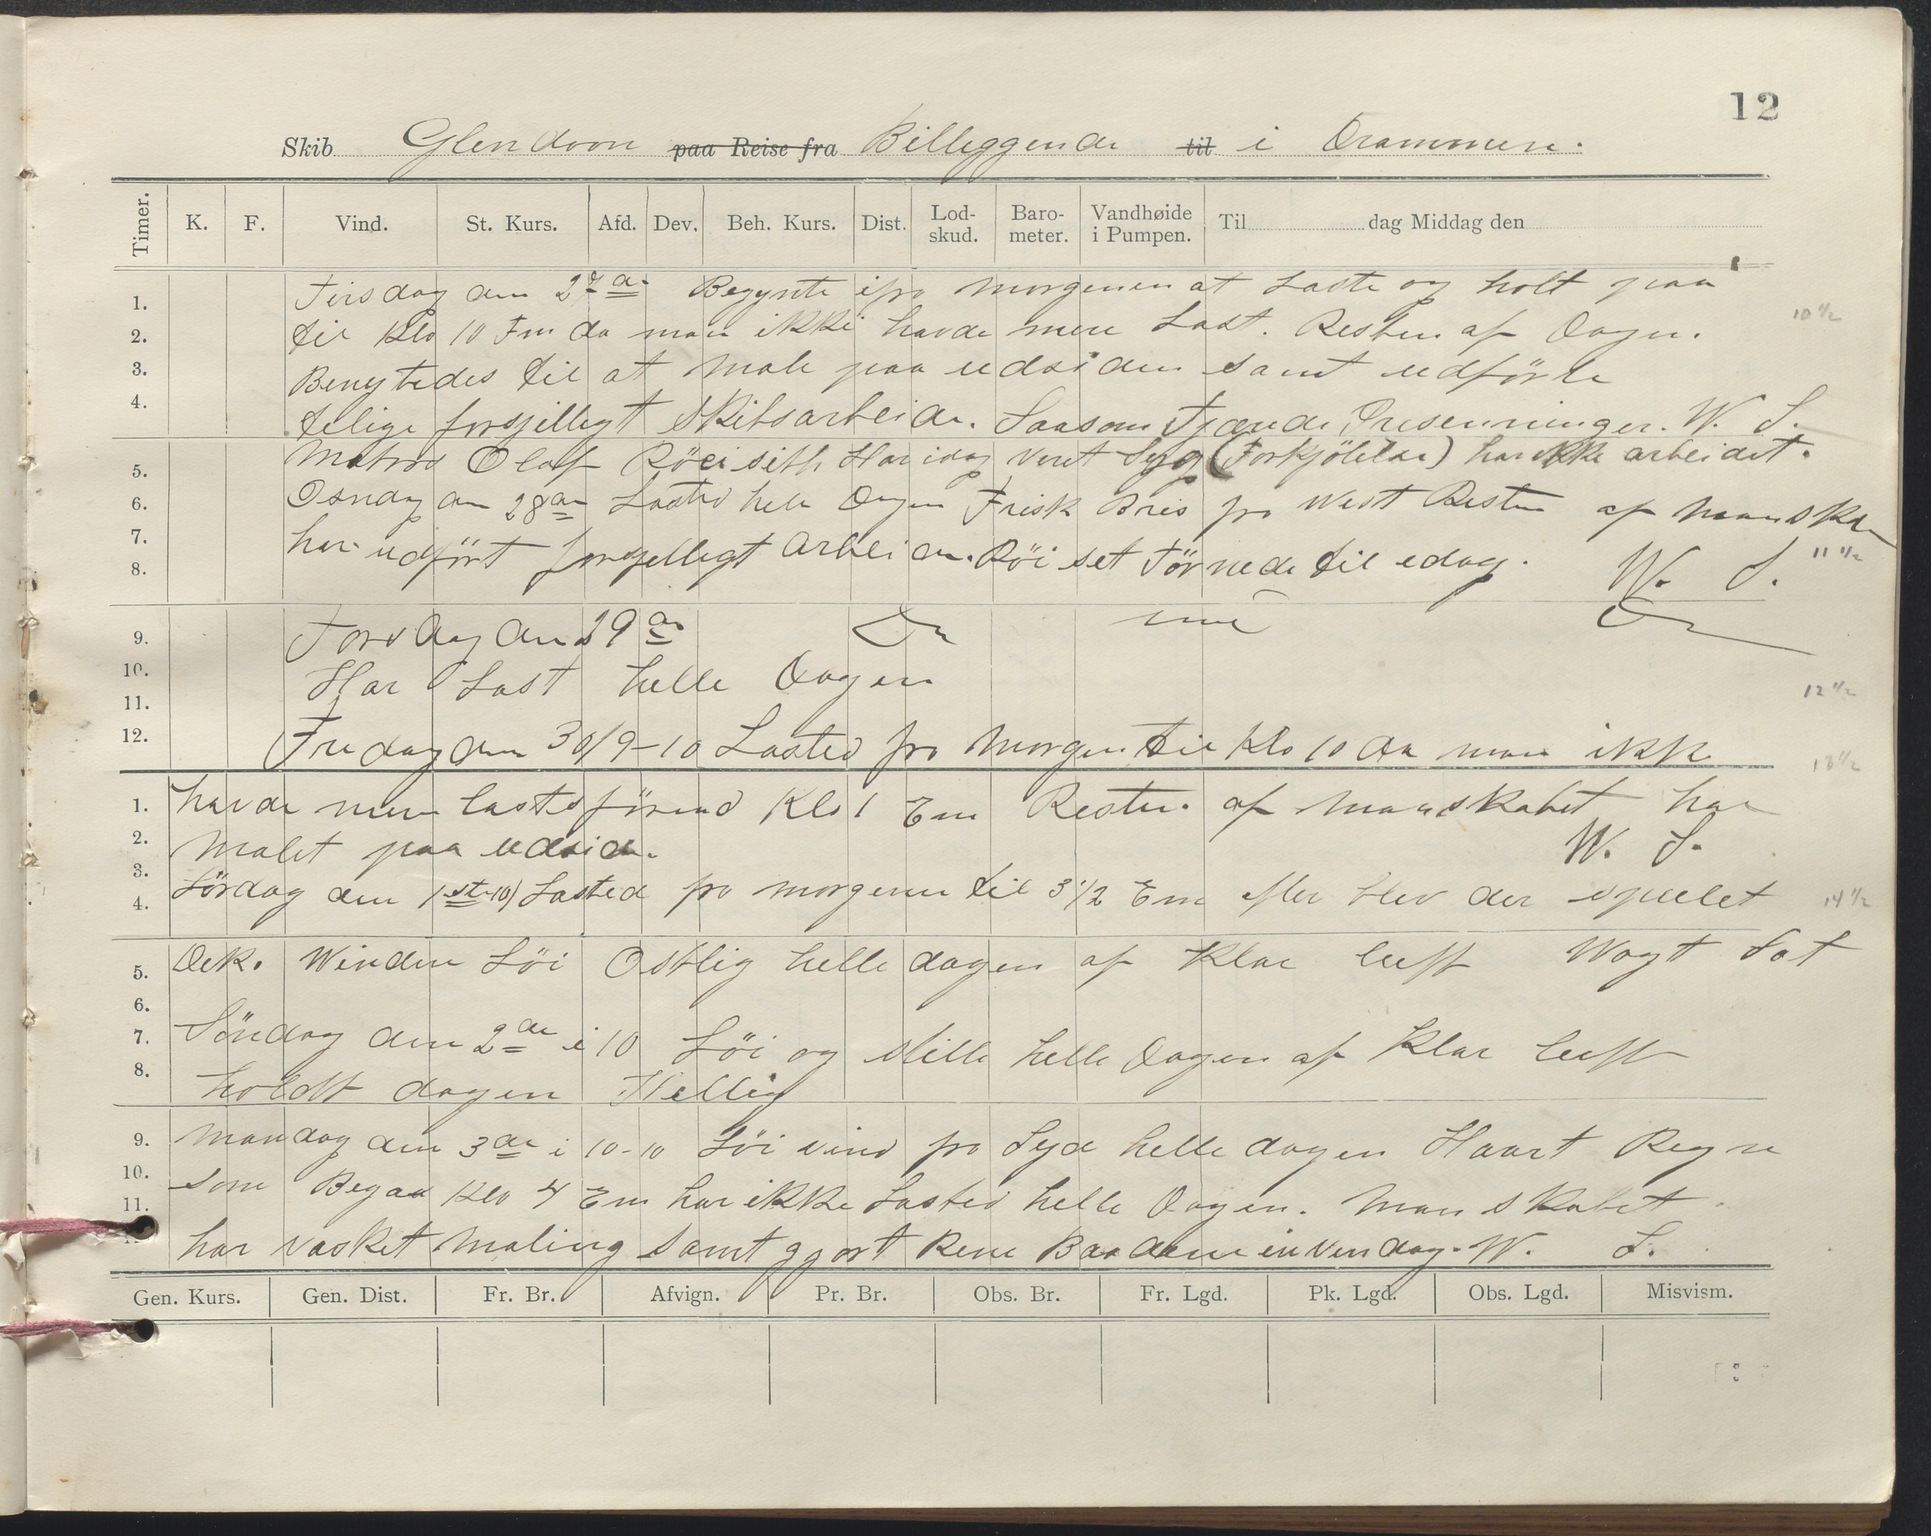 12
Skib Glendoon paa Reise fra Billeggende til i Drammen.
Timer. K. F. Vind. St. Kurs. Afd. Dev. Beh. Kurs. Dist. Lod-skud. Baro-meter. Vandhøide i Pumpen. Til dag Middag den
1. Tirsdag den 27de Begynte ifra morgenen at Laste og holt paa
2. til Klo 10 Fm da man ikke havde mere Last. Resten af Dagen. 10 1/2
3. Benytedes til at Male paa udsiden samt udförte
4. felige forsjelligt Skibsarbeide. Saasom Tjærede Presenninger. W. S.
5. Matros Olaf Röei seth Har idag veret Syg (Forkjölelse) har ikke arbeidet.
6. Osndag den 28de Lasted hele Dagen Frisk Bris fra West Resten af Manska
7. har udfört forsjelligt Arbeide. Röi set Törnede til idag. W. S. 11 1/2
8.
9. Torsdag den 29de
10. Har Last helle Dagen 12 1/2
11.
12. Fredag den 30/9-10 Lasted fra Morgen til Klo 10 da man ikke
13 1/2
1. havde mere lastsförend Klo 1 Em Resten af Manskabet har
2. Malet paa udside. W. S.
3.
4. Lördag den 1st-10) Lasted fra morgenen til 3 1/2 Em efter blev der spulet 14 1/2
5. Dek. Winden Löi Ostlig helle dagen af Klar luft Wagt Sat
6.
7. Söndag den 2de i 10 Löi og stille helle Dagen af Klar luft
8. holdt dagen Hellig
9. Mandag den 3de i 10-10 Löi vind fra Syd helle dagen Haart Regn
10. som Begaa Klo 4 Em har ikke Lasted helle Dagen. Manskabet
11. har vasket Maling samt gjort Rene Baadene invendag. W. S.
Gen. Kurs. Gen. Dist. Fr. Br. Afvign. Pr. Br. Obs. Br. Fr. Lgd. Pk. Lgd. Obs. Lgd. Misvism.